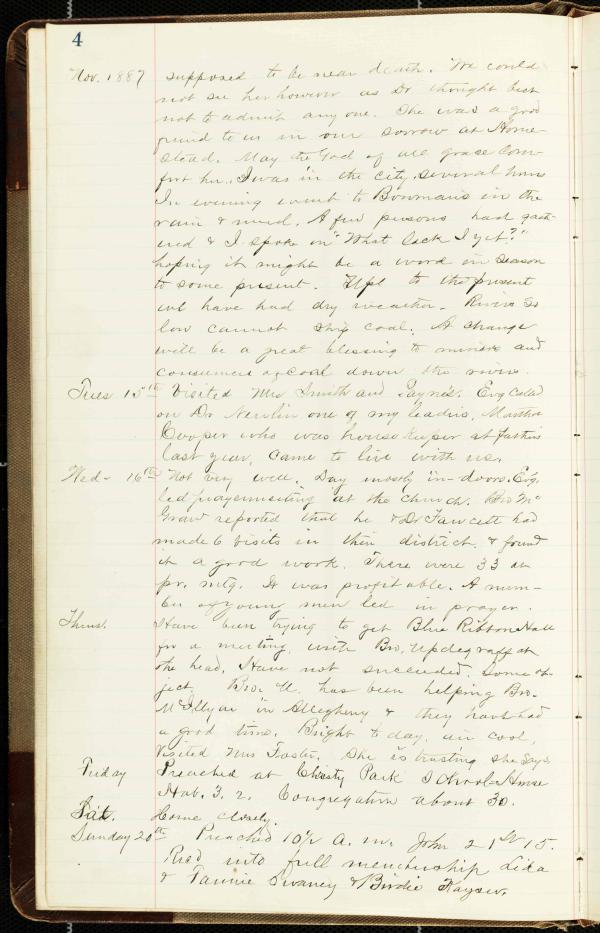 4
Nov. 1887 supposed to be near death. We could
not see her however as Dr thought best
not to admit any one. She was a good
friend to us in our sorrow at Home-
stead. May the God of all grace com-
fort her. I was in the city several hours
In evening went to Bowman's in the
rain & mud. A few persons had gath-
ered & I spoke on "What lack I yet?"
hoping it might be a word in season
to some present. Up to the present
we have had dry weather. Rivers so
low cannot ship coal. A change
will be a great blessing to miners and
consumers of coal down the river.
Tues 15th Visited Mrs Smith and Payne's. Evg called
on Dr Newlin one of my leaders. Martha
Cooper who was housekeeper at father's
last year, came to live with us.
Wed- 16th Not very well. Day mostly in-doors. Evg.
led prayermeeting at the church. Bro Mc
Graw reported that he & Dr Fawcett had
made 6 visits in their district & found
it a good work. There were 33 at
pr. mtg. It was profitable. A num-
ber of young men led in prayer.
Thurs. Have been trying to get Blue Ribbon Hall
for a meeting with Bro. Updegraff at
the head. Have not succeeded. Some ob-
ject. Bro. U. has been helping Bro.
in Allegheny & they have had
a good time. Bright to day, air cool.
Visited Mrs Foster. She is trusting she says
Friday Preached at Christy Park School House
Hab. 3. 2. Congregation about 30.
Sat. Home closely.
Sunday 20th Preached 10½ A. m. John 21st 15.
Rec'd into full membership Lida
& Fannie Swaney & Birdie Kayser.